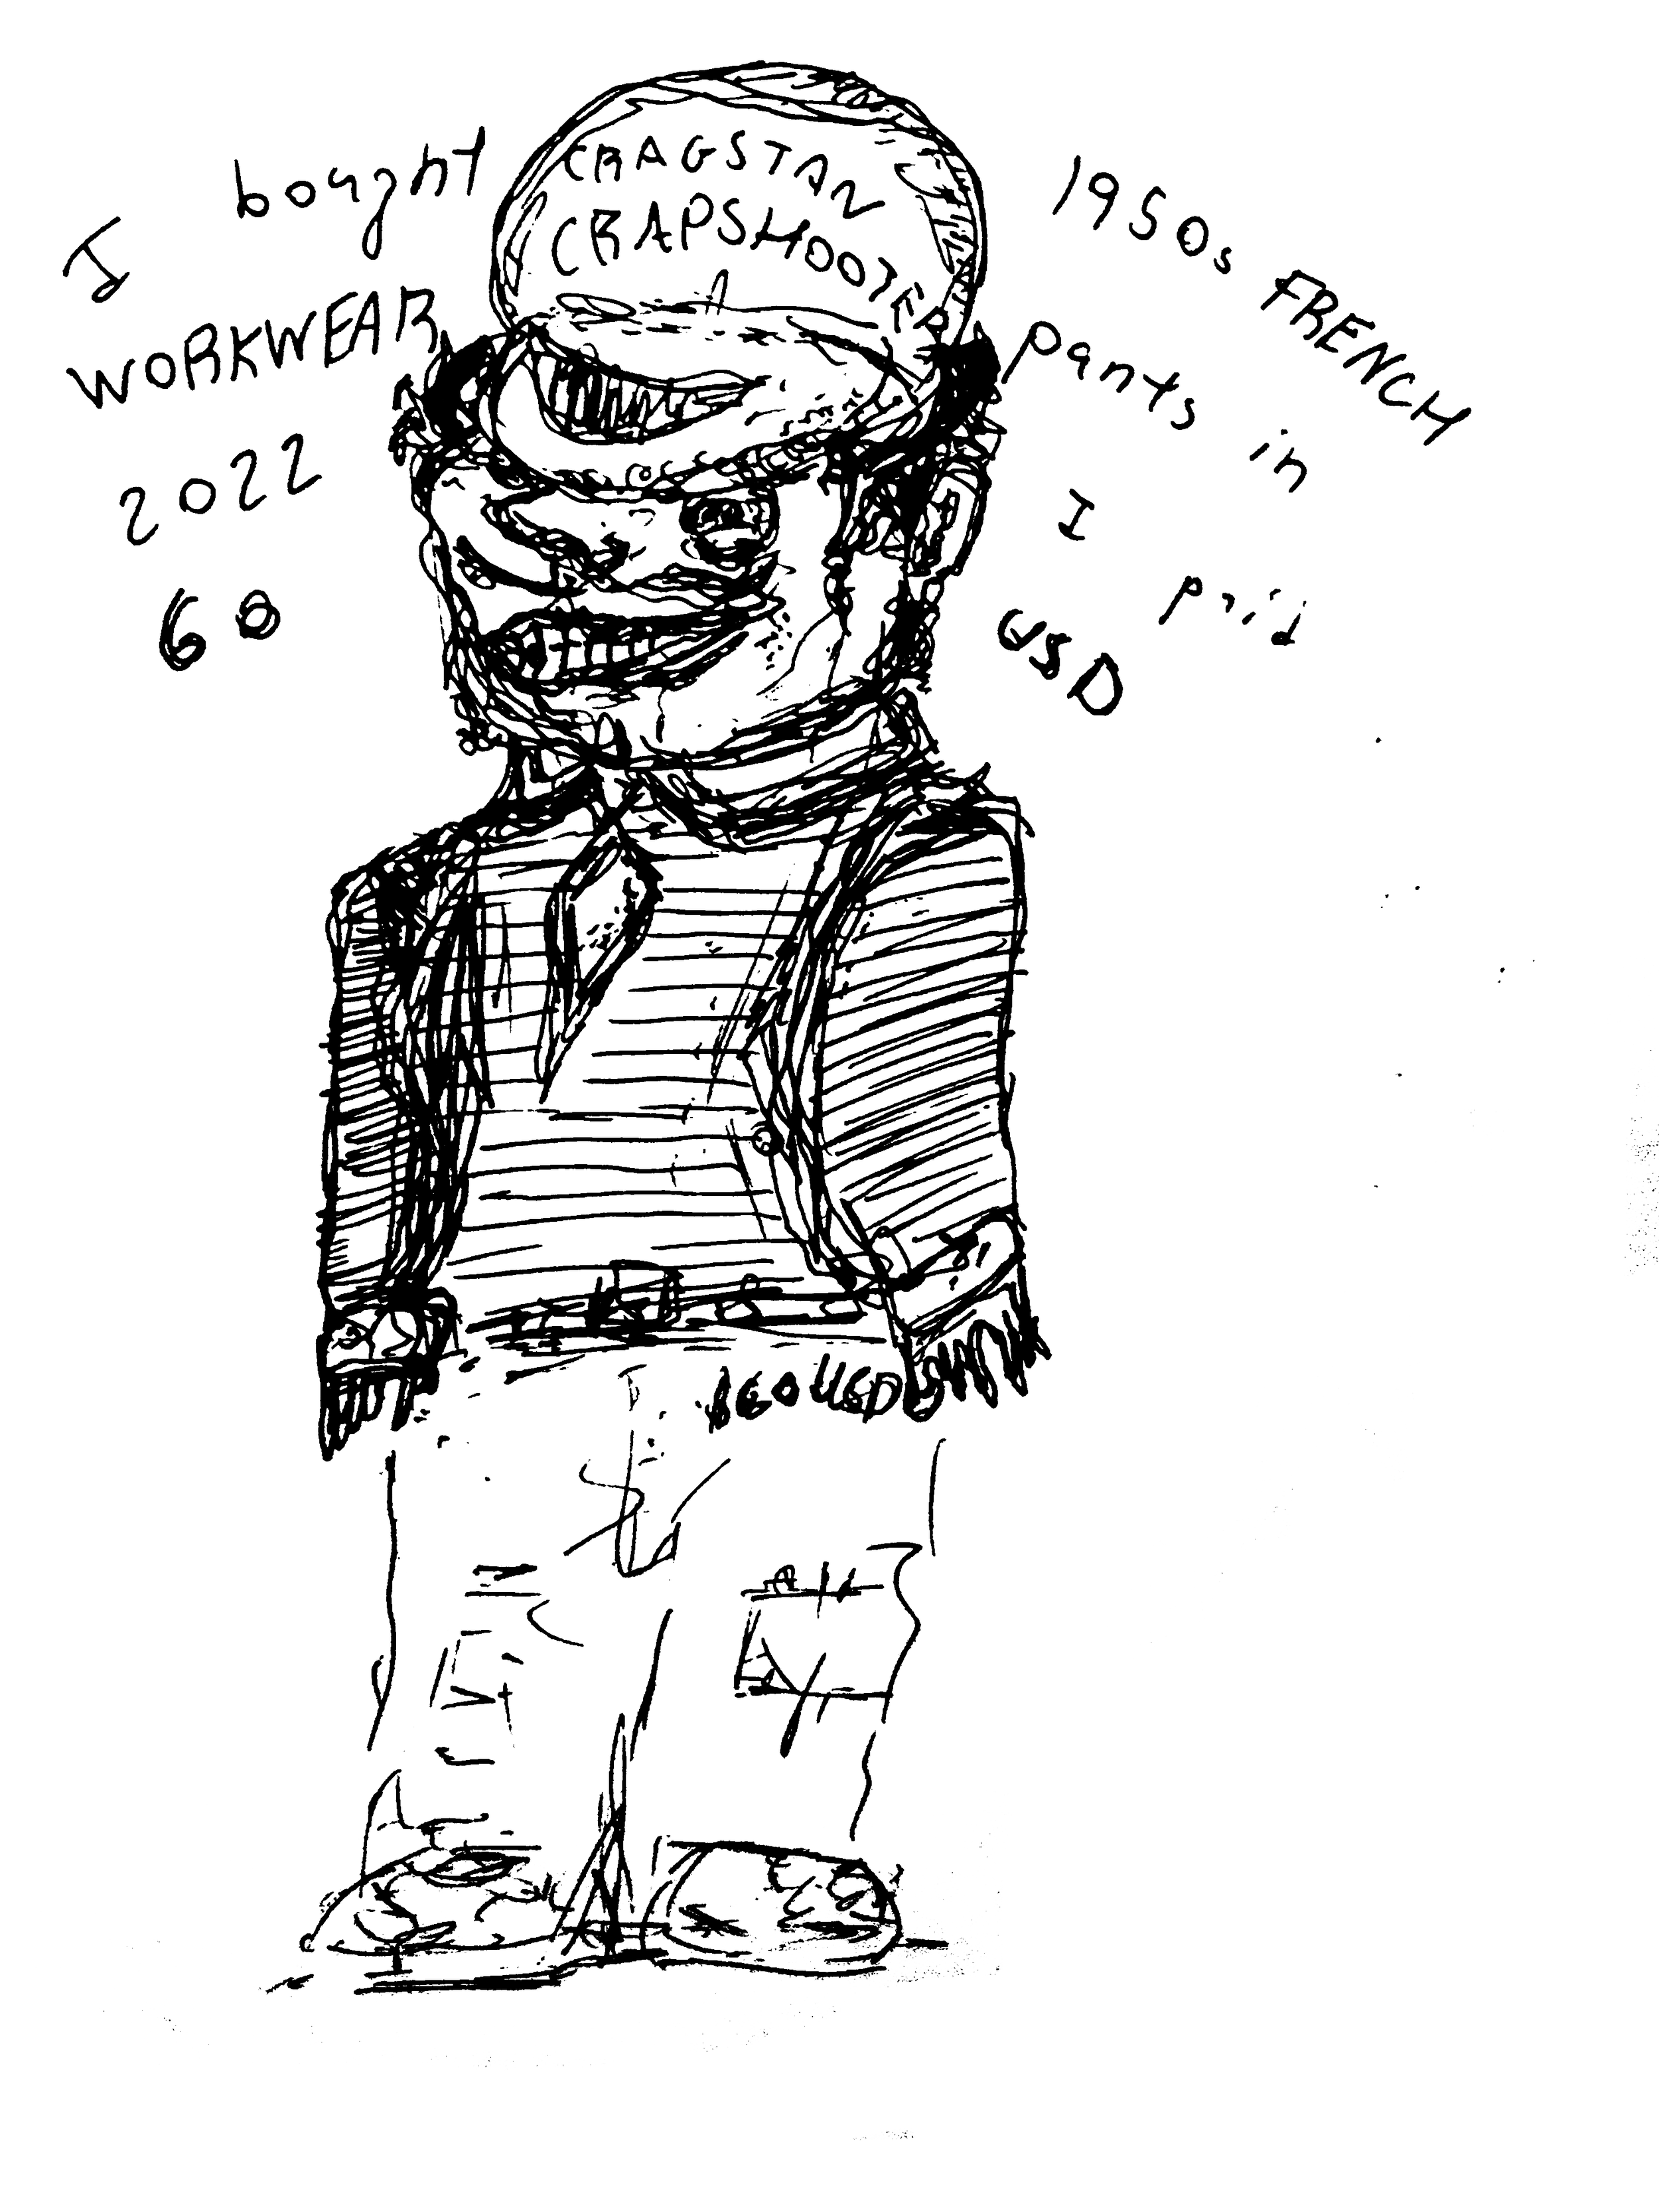 I bought 1950s FRENCH
WORKWEAR pants in
2022 I paid
60 USD
CRAGSTAN
CRAPSHOOTER
$60 USD